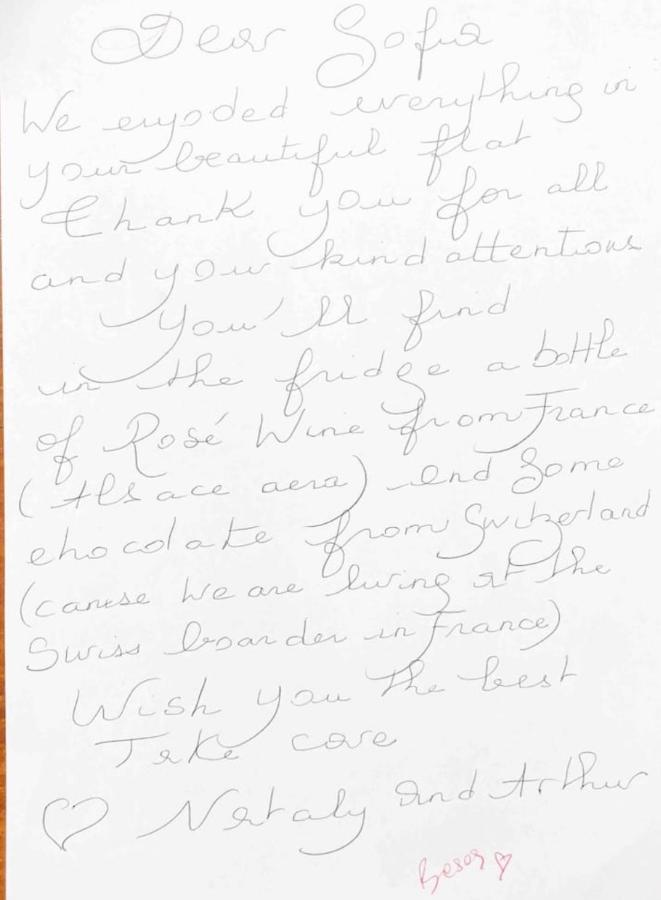 Dear Sofia
We enyoded everything in
your beautiful flat
Thank you for all
and your kind attentions
You'll find
in the fridge a bottle
of Rosé Wine from France
(Alsace aera) and some
chocolate from Switzerland
(cause we are living at the
Swiss boarder in France)
Wish you the best
Take care
♡ Nataly and Arthur
Besos ♡